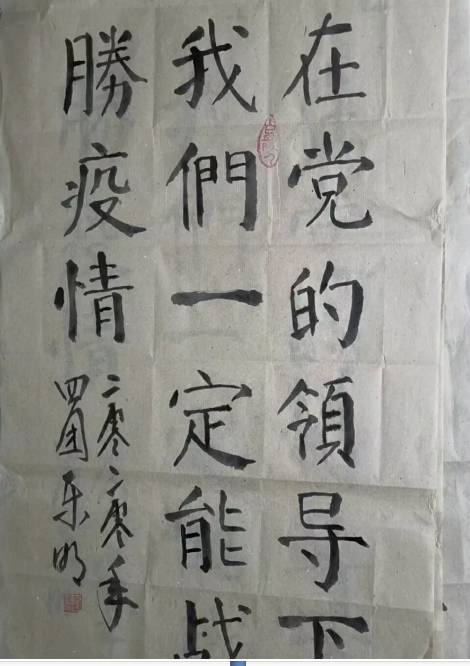 在党的領导下
我們一定能战
勝疫情
二零二零年
四乐明